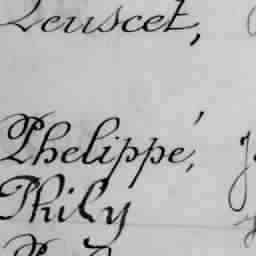 Leuscet,
Phelippe,
Phily